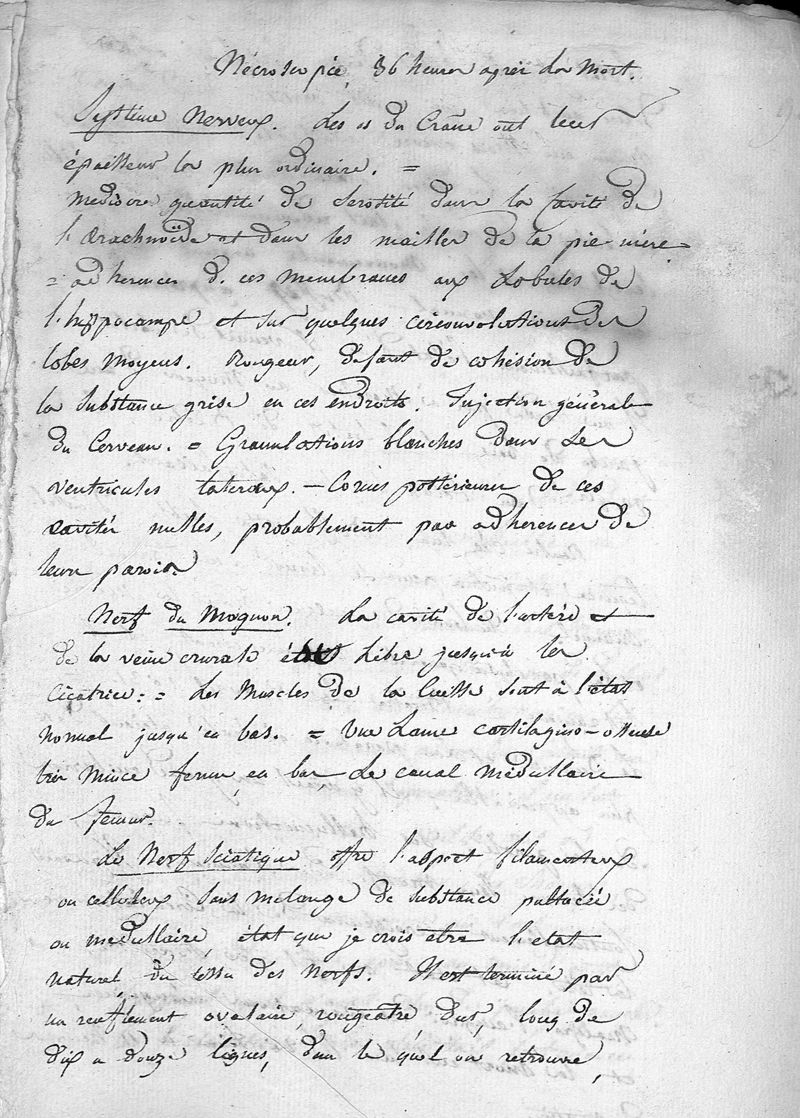 Nécroscopie, 36 heures après la mort.
Système Nerveux. Les os du Crâne ont leur
épaisseur la plus ordinaire. =
mediocre quantité de serosité dans la cavité de
l'arachnoïde et dans les mailles de la pie-mère =
= adherences de ces membranes aux Lobules de
l'hippocampe et sur quelques circonvolutions des
lobes moyens. Rougeur, defaut de cohésion de
la substance grise en ces endroits. Injection générale
du Cerveau. = Granulations blanches dans Les
ventricules lateraux. — Cornes postérieures de ces
cavités nulles, probablement par adherences de
leurs parois
Nerf du Moignon. La cavité de l'artère et
de la veine crurale Libre jusqu'à la
Cicatrice. = Les Muscles de la Cuisse sont à l'état
normal jusqu'en bas. = Une Lame cartilagino-osseuse
très mince ferme en bas Le canal médullaire
du femur.
Le Nerf Sciatique offre l'aspect filamenteux
ou celluleux sans mélange de substance pultacée
ou médullaire, état que je crois etre l'etat
naturel du tissu des nerfs. Il est terminé par
un renflement ovalaire, rougeatre, dur, long de
dix a douze lignes, dans le quel on retrouve,